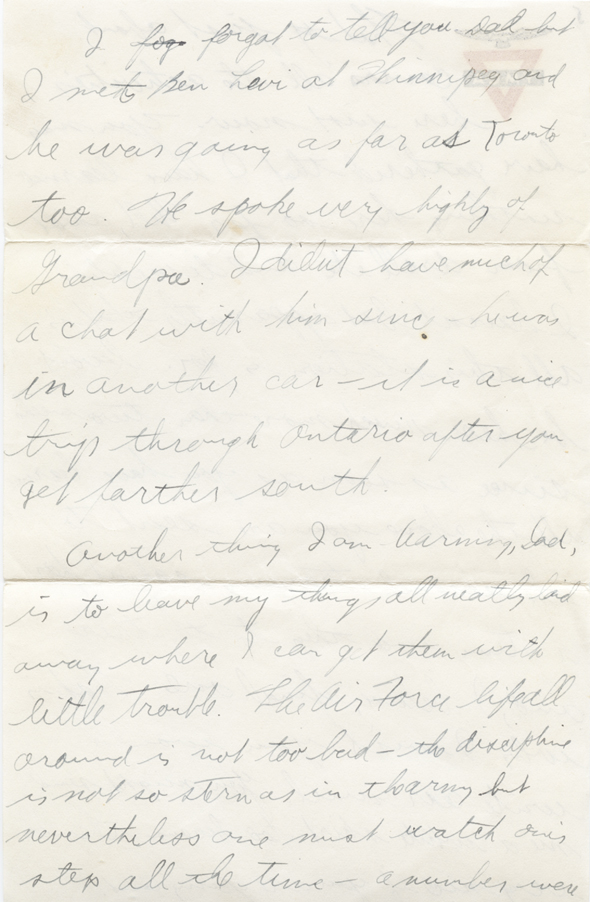 I fog forgot to tell you Dad but
I met Ben Levi at Winnipeg and
he was going as far as Toronto
too. He spoke very highly of
Grandpa. I didn't have much of
a chat with him since he was
in another car – it is a nice
trip through Ontario after you
get farther south.
Another thing I am learning, Dad,
is to leave my things all neatly laid
away where I can get them with
little trouble. The Air Force life all
around is not too bad – the discipline
is not so stern as in the army but
nevertheless one must watch one's
step all the time – a number were